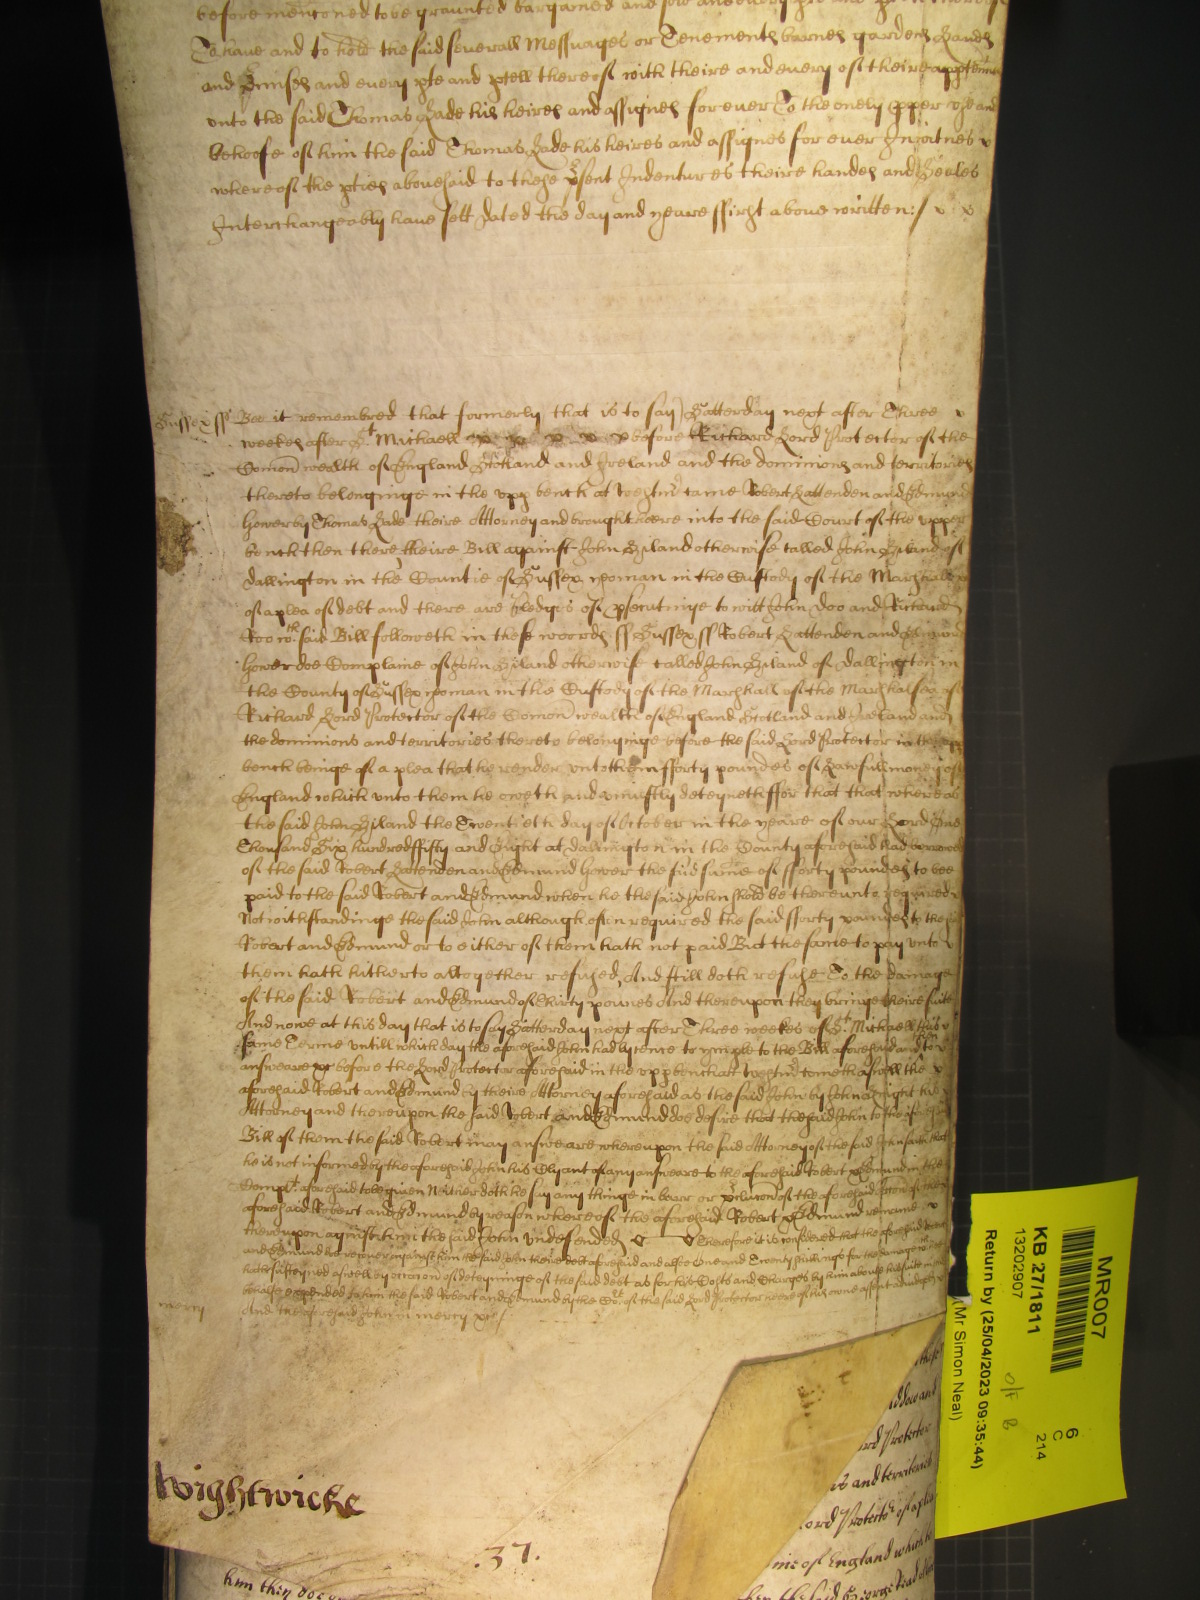 before menconed to be graunted bargained and sold and every pte and pcell thereof
To have and to hold the said severall Messuages or Tenements barnes gardens Lands
and pmisses and every pte and pcell thereof with theire and every of theire apptenn
unto the said Thomas Lade his heires and assignes for ever To the onely pper use and
behoofe of him the said Thomas Lade his heires and assignes for ever In witnes
whereof the pties abovesaid to these psent Indentures theire handes and Seales
Interchangeably have sett dated the day and yeare ffirst above written
Sussex ss Bee it remembred that formerly that is to say Satterday next after Three
weekes after St Michaell before Richard Lord Protector of the
Comon wealth of England Scotland and Ireland and the dominions and territories
thereto belonginge in the upp bench at Westmr came Robert Lattenden and Edmund
Hower by Thomas Lade theire Attorney and brought heere into the said Court of the upper
bench then there theire Bill against John Giland otherwise called John Giland of
dallington in the Countie of Sussex yoman in the Custody of the Marshall
of a plea of debt and there are pledges of psecutinge to witt John Doo and Richard
Roo wch said Bill followeth in these woords ss Sussex ss Robert Lattenden and Edmund
Hower doe Complaine of John Giland otherwise called John Giland of dallington in
the County of Sussex yoman in the Custody of the Marshall of the Marshalsea of
Richard Lord Protector of the Comon wealth of England Scotland and Ireland and
the dominions and territories thereto belonginge before the said Lord Protector in the upp
bench beinge of a plea that he render unto them fforty poundes of Lawfull money of
England which unto them he oweth and uniustly deteyneth ffor that that whereas
the said John Giland the Twentieth day of October in the yeare of our Lord One
Thousand Six hundred ffifty and Eight at dallington in the County aforesaid had borrowed
of the said Robert Lattenden and Edmund Hower the said sume of fforty poundes to bee
paid to the said Robert and Edmund when he the said John should be thereunto required
Notwithstandinge the said John although often required the said fforty poundes to the said
Robert and Edmund or to either of them hath not paid But the same to pay unto
them hath hitherto altogether refused And still doth refuse To the damage
of the said Robert and Edmund of Thirty pounes And thereupon they bringe theire suite
And nowe at this day that is to say Satterday next after Three weekes of St Michaell this
same Terme untill which day the aforesaid John had lycence to imple to the Bill aforesaid and to
answeare &c before the Lord Protector aforesaid in the upp bench att Westmr cometh aswell the
aforesaid Robert and Edmund by theire Attorney aforesaid as the said John by John Knight his
Attorney and thereupon the said Robert and Edmund doe desire that the said John to the aforesaid
Bill of them the said Robert may answeare whereupon the said Attorney of the said John saith that
he is not informed by the aforesaid John his Clyant of any answeare to the aforesaid Robert & Edmund in the
Complt aforesaid to be given Neither doth he say any thinge in barr or pclusion of the aforesaid accon of the
aforesaid Robert and Edmund by reason whereof the aforesaid Robert & Edmund remaine
thereupon against him the said John undefended Therefore it is considered that the aforesaid Robert
and Edmund doe recover against him the said John theire debt aforesaid and alsoe One and Twenty shillings for the damage wch they
hath susteyned aswell by occasion of deteyninge of the said debt as for his Costs and Charges by him about his suite in yt
behalfe expended to him the said Robert and Edmund by the Cort of the said Lord Protector heere of his owne assent adiudged
And the aforesaid John in mercy &c
mercy
Wightwicke
.37.
ord Protector
and territories
Lord Protector of a plea
me of England which
him then doe
then the said George
MR007
KB 27/1811
13202907
Return by (25/04/2023 09:35:44)
(Mr Simon Neal)
6
C
214